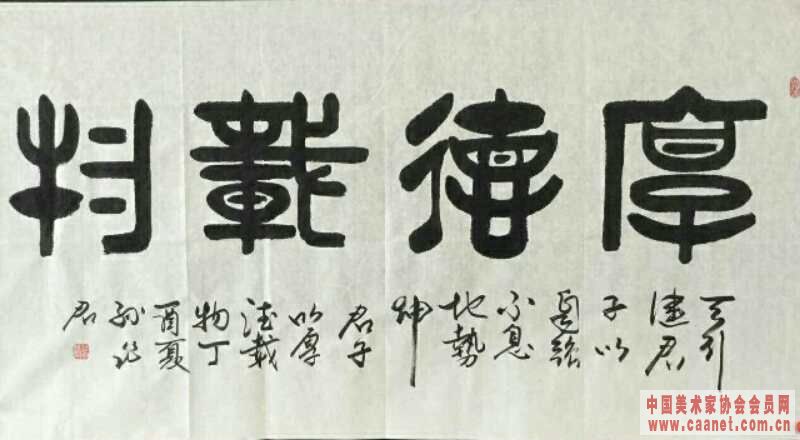 厚德載物
天行
健君
子以
自强
不息
地勢
坤
君子
以厚
德載
物丁
酉夏
君
中国美术家协会会员网
www.caanet.com.cn